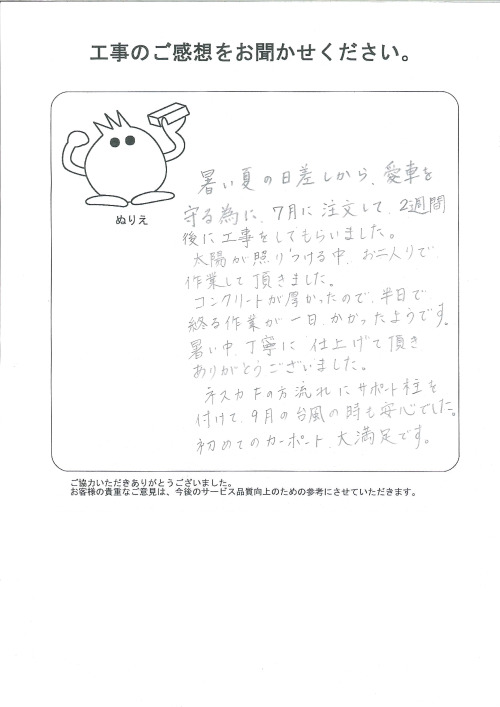 工事のご感想をお聞かせください。
ぬりえ
暑い夏の日差しから、愛車を
守る為に、7月に注文して、2週間
後に工事をしてもらいました。
太陽が照りつける中、お二人りで、
作業して頂きました。
コンクリートが厚かったので、半日で
終る作業が一日、かかったようです。
暑い中、丁寧に仕上げて頂き
ありがとうございました。
ネスカFの方流れにサポート柱を
付けて、9月の台風の時も安心でした。
初めてのカーポート、大満足です。
ご協力いただきありがとうございました。
お客様の貴重なご意見は、今後のサービス品質向上のための参考にさせていただきます。